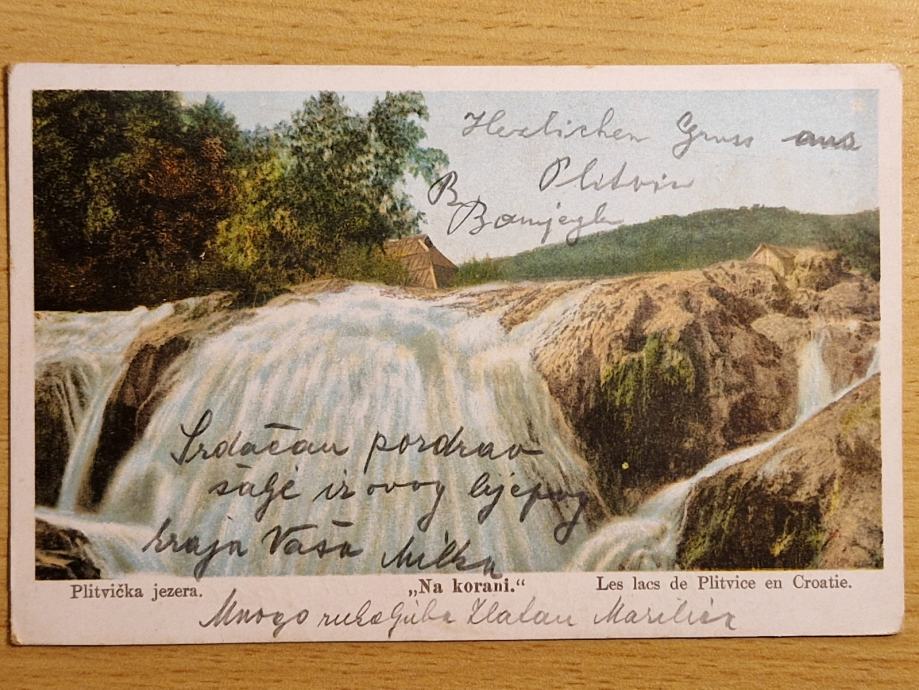 Herzlichen Gruss aus
Plitvic
B
Srdačan pozdrav
šalje iz ovog lijepog
kraja Vaša Milka
Plitvička jezera.
„Na korani.“
Les lacs de Plitvice en Croatie.
Mnogo rukoljuba Zlatan